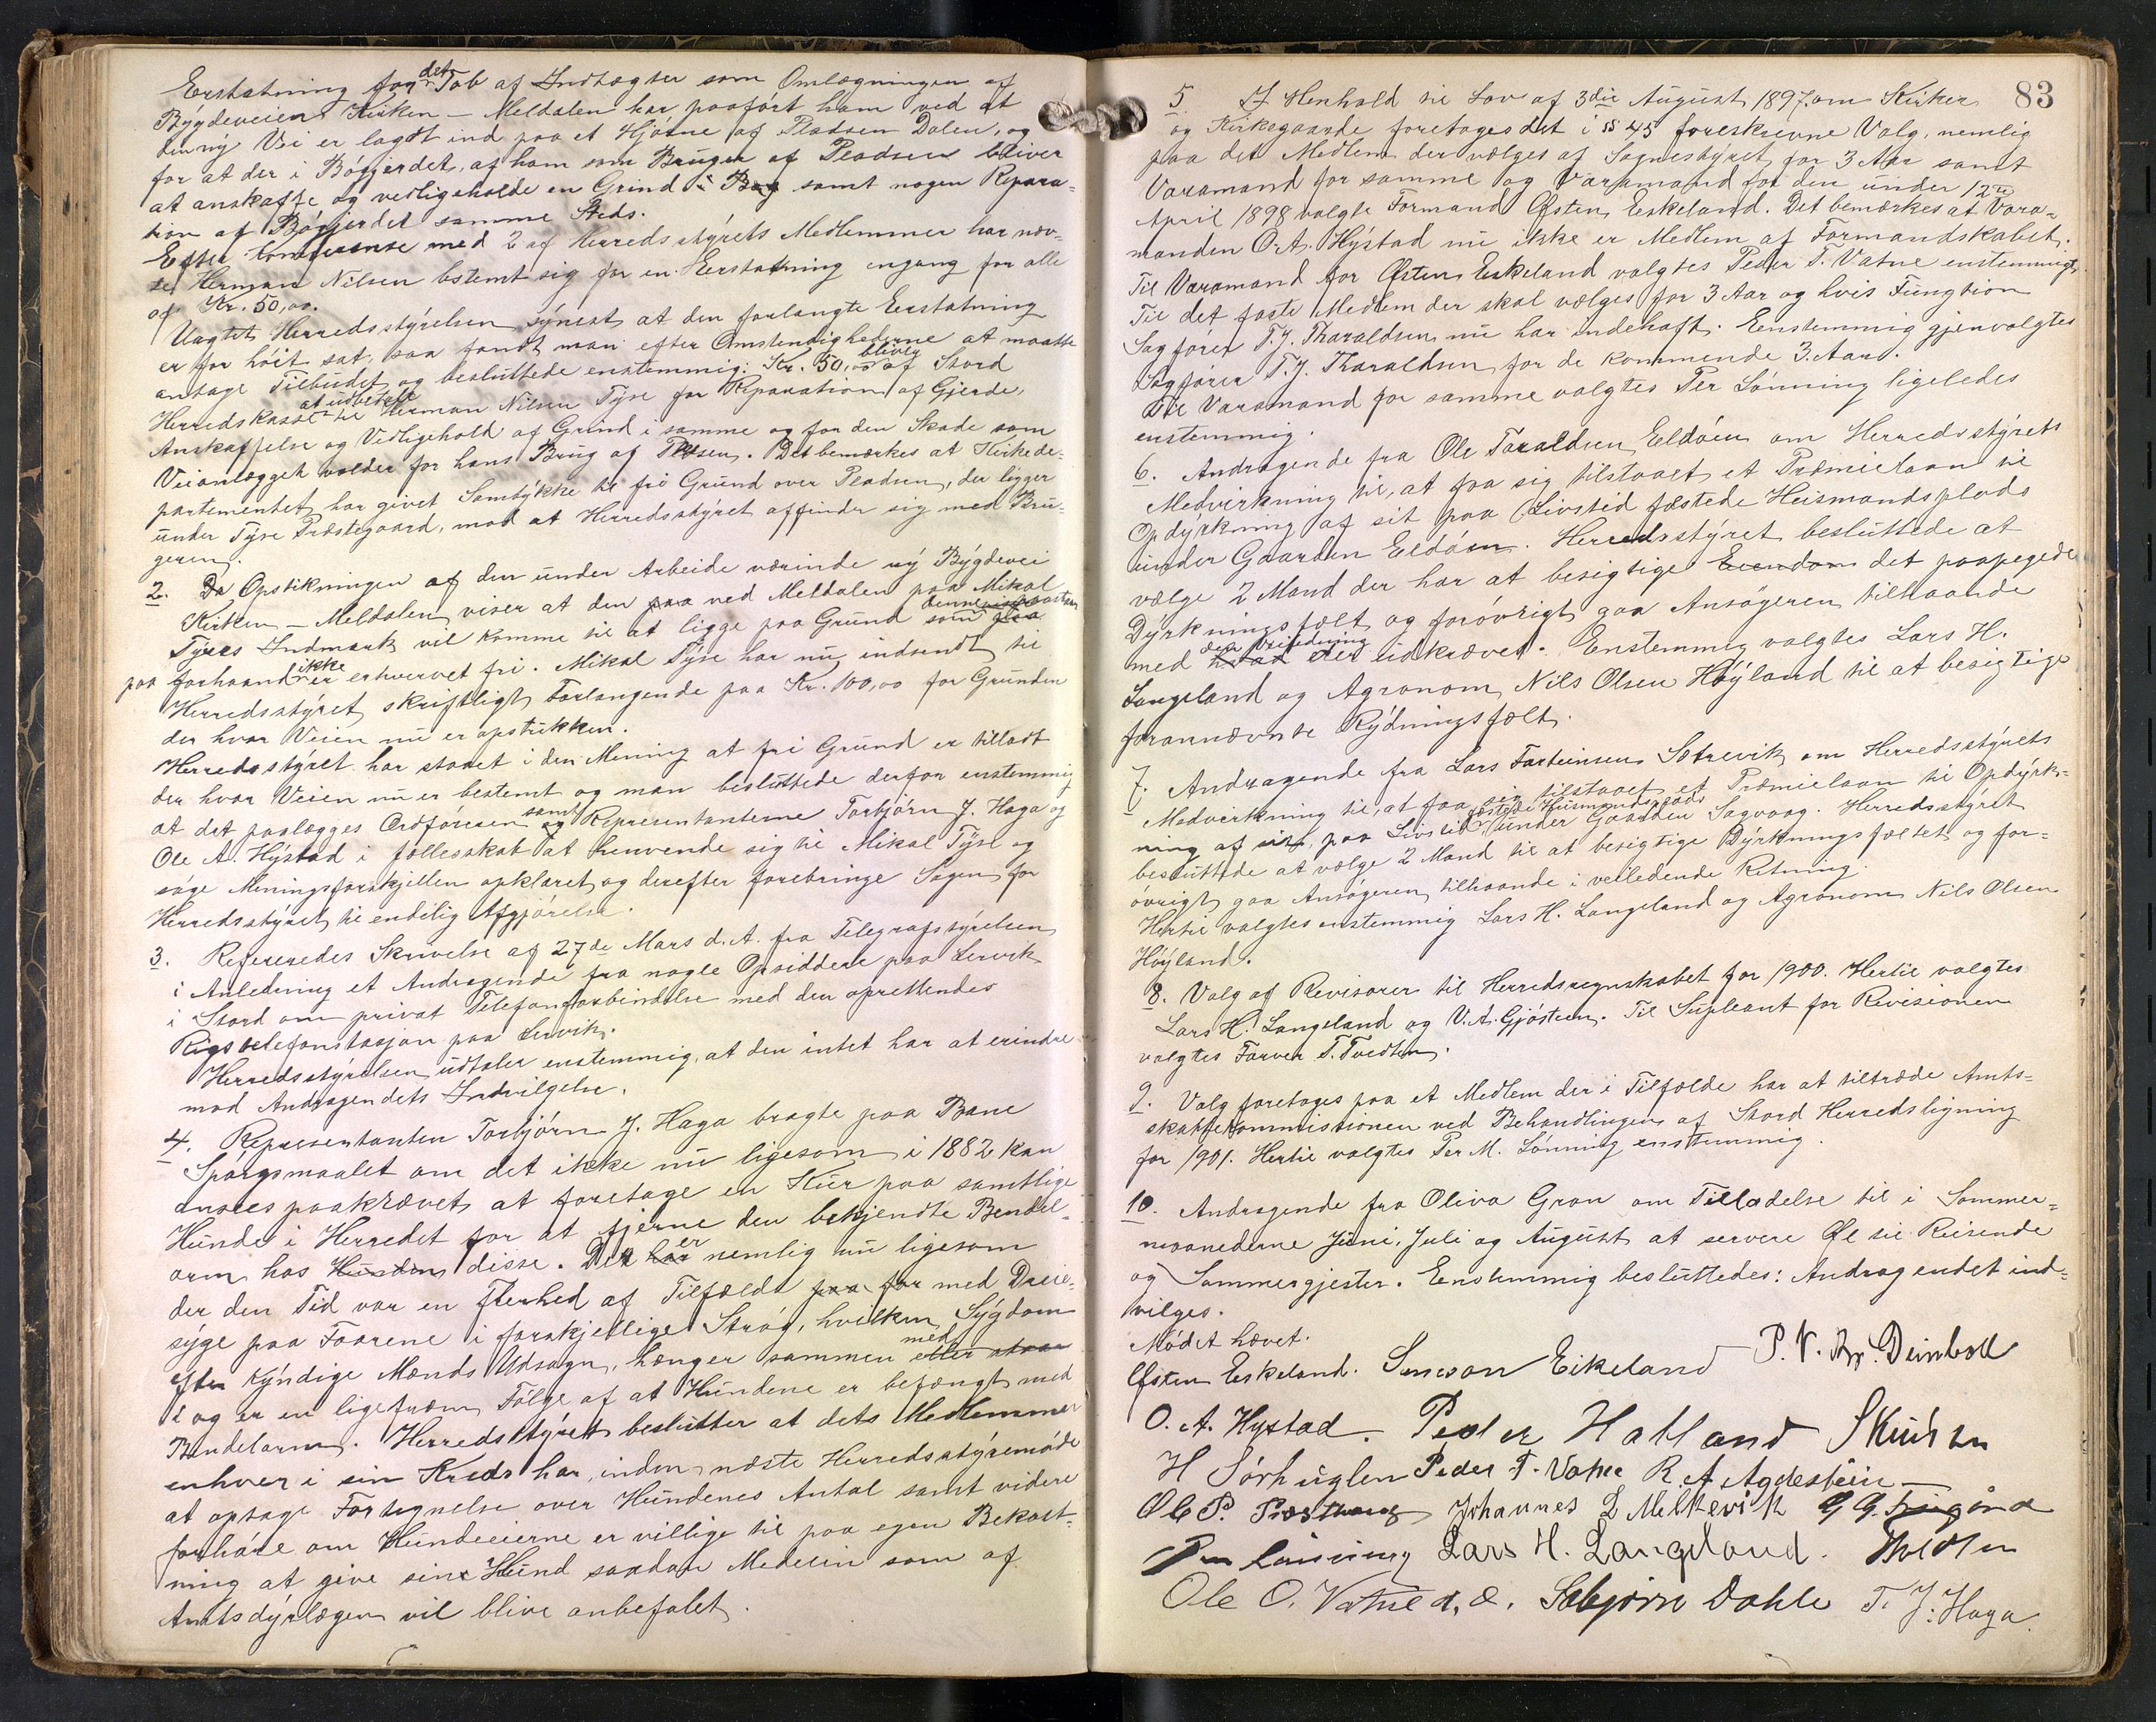 Erstatning for det Tab af Indtægter som Omlægningen af
Bygdeveien Kirken – Meldalen har paaført ham ved at
den ny Vei er lagdt ind paa et Hjørne af Pladsen Dalen, og
for at der i Bøgjerdet, af ham som Bruger af Pladsen bliver
at anskaffe og vedligeholde en Grind i Bøg samt nogen Repara-
tion af Bøgjerdet samme Steds.
Efter Konferense med 2 af Herredsstyrets Medlemmer har næv-
te Herman Nilsen bstemt sig for en Eerstatning engang for alle
af Kr. 50,00.
Uagtet Herredsstyrelsen synest at den forlangte Eerstatning
er for høit sat, saa fandt man efter Omstendighederne at maatte
antage Tilbudet og besluttede enstemmig: Kr. 50,00 bliver af Stord
Herredskasse at udbetale til Herman Nilsen Tyse for Reparation af Gjerde,
Anskaffelse og Vedligehold af Grind i samme og for den Skade som
Veianlægget volder for hans Brug af Pladsen. Det bemærkes at Kirkede-
partementet har givet Samtykke til fri Grund over Pladsen, der ligger
under Tyse Præstegaard, mod at Herredsstyret affinder sig med Bru-
geren.
2. Da Opstikningen af den under Arbeide værinde ny Bygdevei
Kirken – Meldalen viser at den paa ved Meldalen paa Mikal
Tyses Indmark vil komme til at ligge paa Grund som denne
paa forhaand ikke er erhvervet fri. Mikal Tyse har nu indsendt til
Herredsstyret skriftligt Forlangende paa Kr. 100,00 for Grunden
der hvor Veien nu er opstukken.
Herredsstyret har staaet i den Mening at fri Grund er tilladt
der hvor Veien nu er bestemt og man besluttede derfor enstemmig
at det paalægges Ordføreren samt og Representanterne Torbjørn J. Haga og
Ole A. Hystad i fællesskab at henvende sig til Mikal Tyse og
søge Meningsforskjellen opklaret og derefter forebringe Sagen for
Herredsstyret til endelig Afgjørelse.
3. Refereredes Skrivelse af 27de Mars d. A. fra Telegrafstyrelsen
i Anledning et Andragende fra nogle Opsiddere paa Lervik
i Stord om privat Telefonforbindelse med den oprettendes
Rigstelefonstasjon paa Lervik.
Herredsstyrelsen udtaler enstemmig, at den intet har at erindre
mod Andragendets Indvilgelse.
4. Representanten Torbjørn J. Haga bragte paa Bane
Spørgsmaalet om det ikke nu ligesom i 1882 kan
ansees paakrævet at foretage en Kur paa samtlige
Hunde i Herredet for at fjerne den bekjendte Bendel-
orm hos Hunden disse. Der har er nemlig nu ligesom
der den Tid var en flerhed af Tilfælde paa for med Dreie-
syge paa Faarene i forskjellige Strøg, hvilken Sygdom
efter kyndige Mænds Udsagn, hænger sammen med
i og er en ligefrem Følge af at Hundene er befængt med
Bendelorm. Herredsstyret beslutter at dets Medlemmer
enhver i sin Kreds har inden næste Herredsstyremøde
at optage Fortegnelse over Hundenes Antal samt videre
forhøre om Hundeeierne er villige til paa egen Bekost-
ning at give sine Hund saadan Medesin som af
Amtsdyrlægen vil blive anbefalet.
83
5. I Henhold til Lov af 3die August 1897 om Kirker
og Kirkegaarde foretages det i § 45 foreskrevne Valg, nemlig
paa det Medlem der vælges af Sognestyret for 3 Aar samt
Varamand for samme og Varamand for den under 12te
April 1898 valgte Formand Østen Eskeland. Det bemærkes at Vara-
manden O. A. Hystad nu ikke er Medlem af Formandskabet.
Til Varamand for Østen Eskeland valgtes Peder T. Vatne enstemmigt.
Til det faste Medlem der skal vælges for 3 Aar og hvis Fungtion
Sagfører T. J. Tharaldsen nu har indehaft. Eenstemmig gjenvalgtes
Sagfører T. J. Tharaldsen for de kommende 3 Aar.
Til Varamand for samme valgtes Per Lønning ligeledes
enstemmig.
6. Andragende fra Ole Taraldsen Eldøen om Herredsstyrets
Medvirkning til, at faa sig tilstaaet et Præmielaan til
Opdyrkning af sit paa Livstid fæstede Heismandsplads
under Gaarden Eldøen. Herredsstyret besluttede at
vælge 2 Mand der har at besigtige Eiendom det paapegede
Dyrkningsfælt og forøvrigt gaa Ansøgeren tilhaande
med den Veiledning der udkræves. Enstemmig valgtes Lars H.
Langeland og Agronom Nils Olsen Høyland til at besigtige
forannævnte Rydningsfælt.
7. Andragende fra Lars Farteinsen Sætrevik om Herredsstyrets
Medvirkning til, at faa sig tilstaaet et Præmielaan til Opdyrk-
ning af sit, paa Livstid fæstede Husmandsplads under Gaarden Sagvaag. Herredsstyret
besluttede at vælge 2 Mand til at besigtige Dyrkningsfeltet og for-
øvrigt gaa Ansøgeren tilhaande i veiledende Retning.
Hertil valgtes enstemmig Lars H. Langeland og Agronom Nils Olsen
Høyland.
8. Valg af Revisorer til Herredsregnskabet for 1900. Hertil valgtes
Lars H. Langeland og V. A. Gjøsteen. Til Supleant for Revisionen
valgtes Farver T. Tvedten.
9. Valg foretages paa et Medlem der i Tilfælde har at tiltræde Amts-
skattekommissionen ved Behandlingen af Stord Herredsligning
for 1901. Hertil valgtes Per M. Lønning enstemmig.
10. Andragende fra Oliva Gran om Tilladelse til i Sommer-
maanederne Juni, Juli og August at servere Øl til Reisende
og Sommergjester. Eenstemmig besluttedes: Andragendet ind-
vilges.
Mødet hævet.
Østen Eskeland. Simson Eikeland P. V. Deinboll
O. A. Hystad. Peder Hatland S Knudsen
H Sørhuglen Peder T. Vatne R A Agdestein
Ole P. Johannes L Melkevik
Per Lønning Lars H. Langeland. Tvedten
Ole O. Vatne d. æ. Asbjørn Dahle T. J. Haga.